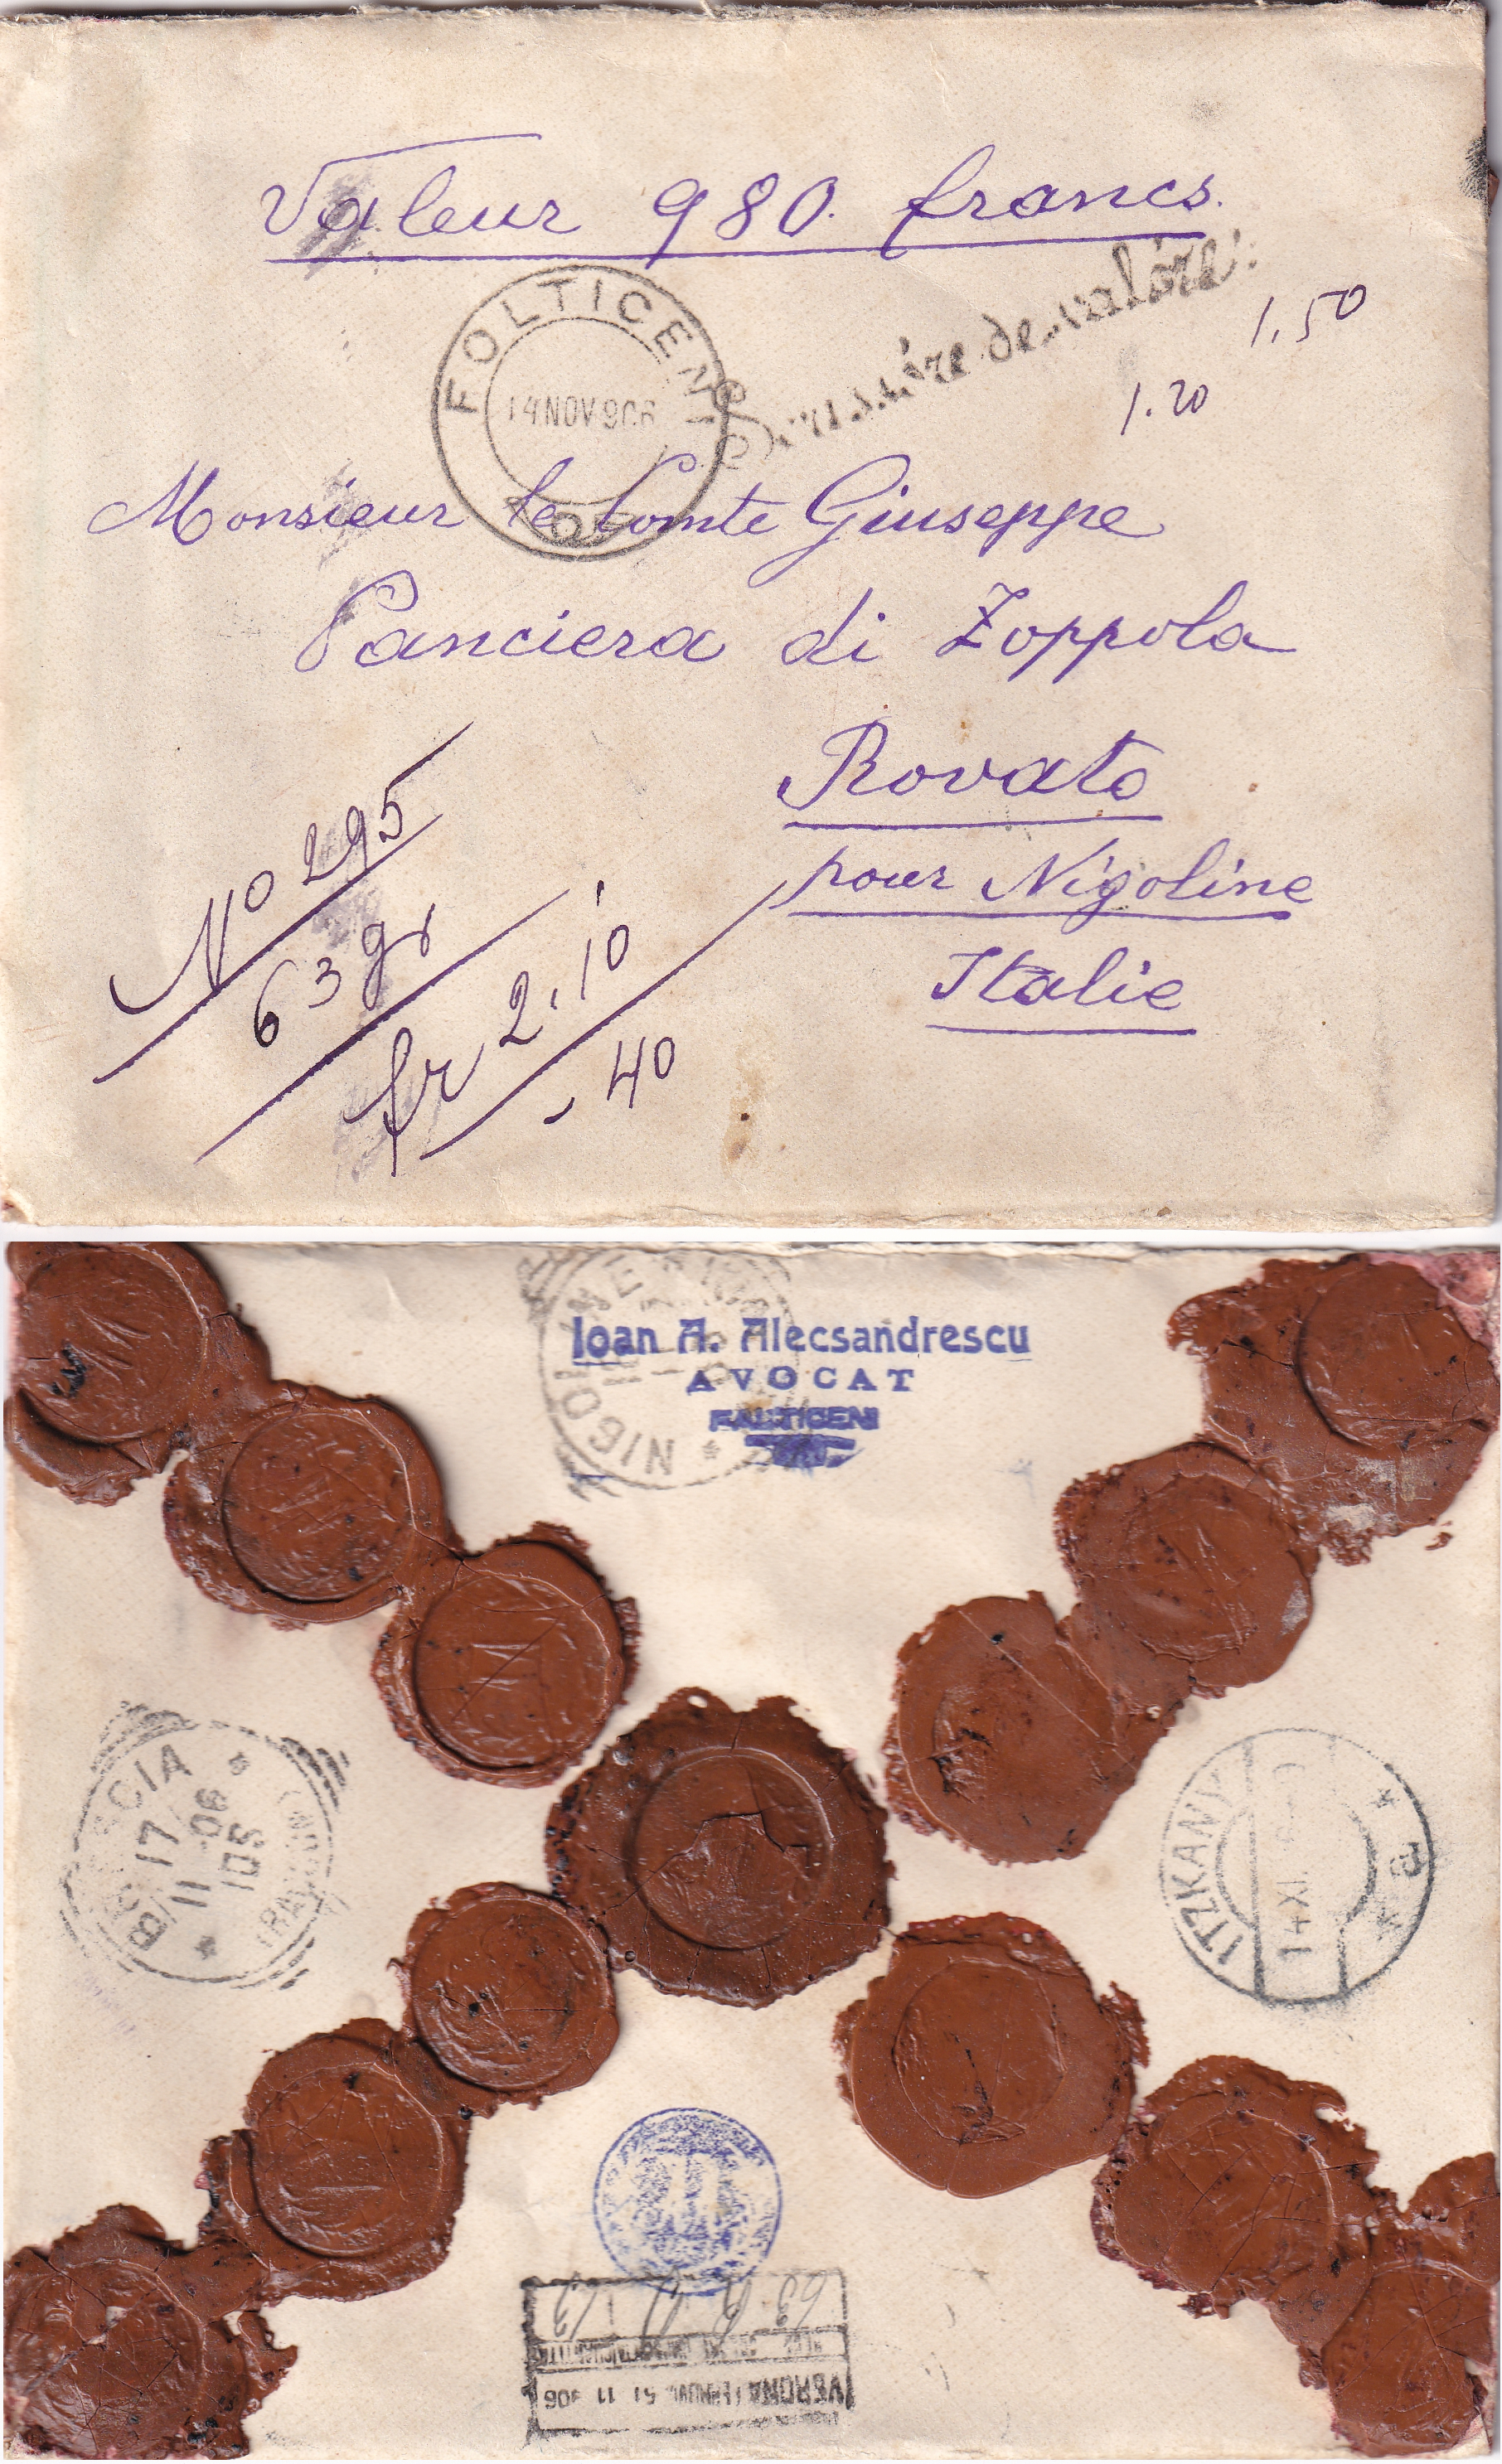 Valeur 980. francs.
FOLTICENI
14 NOV 906
Scrisóre de valóre
1.50
1.20
Monsieur le Comte Giuseppe
Panciera di Zoppola
Rovato
pour Nigoline
Italie
No 295
63 gr
fr 2.10
- 40
NIGOLINE
Ioan A. Alecsandrescu
AVOCAT
FALTICENI
BRESCIA
17
11 06
10S
ITZKANY
14 XI
a
VERONA 11 906